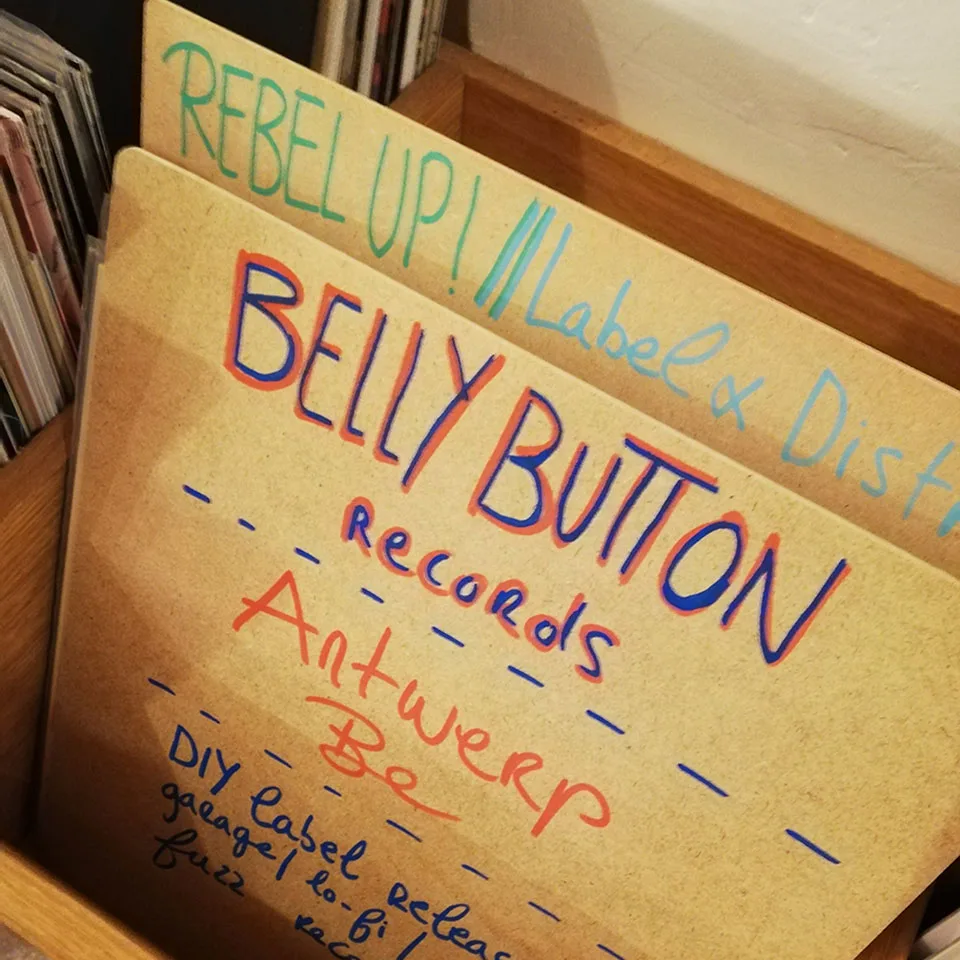 REBEL UP! /// Label & Distr
BELLY BUTTON
Records
Antwerp
Be
DIY label releas
garage / lo-fi /
fuzz rec